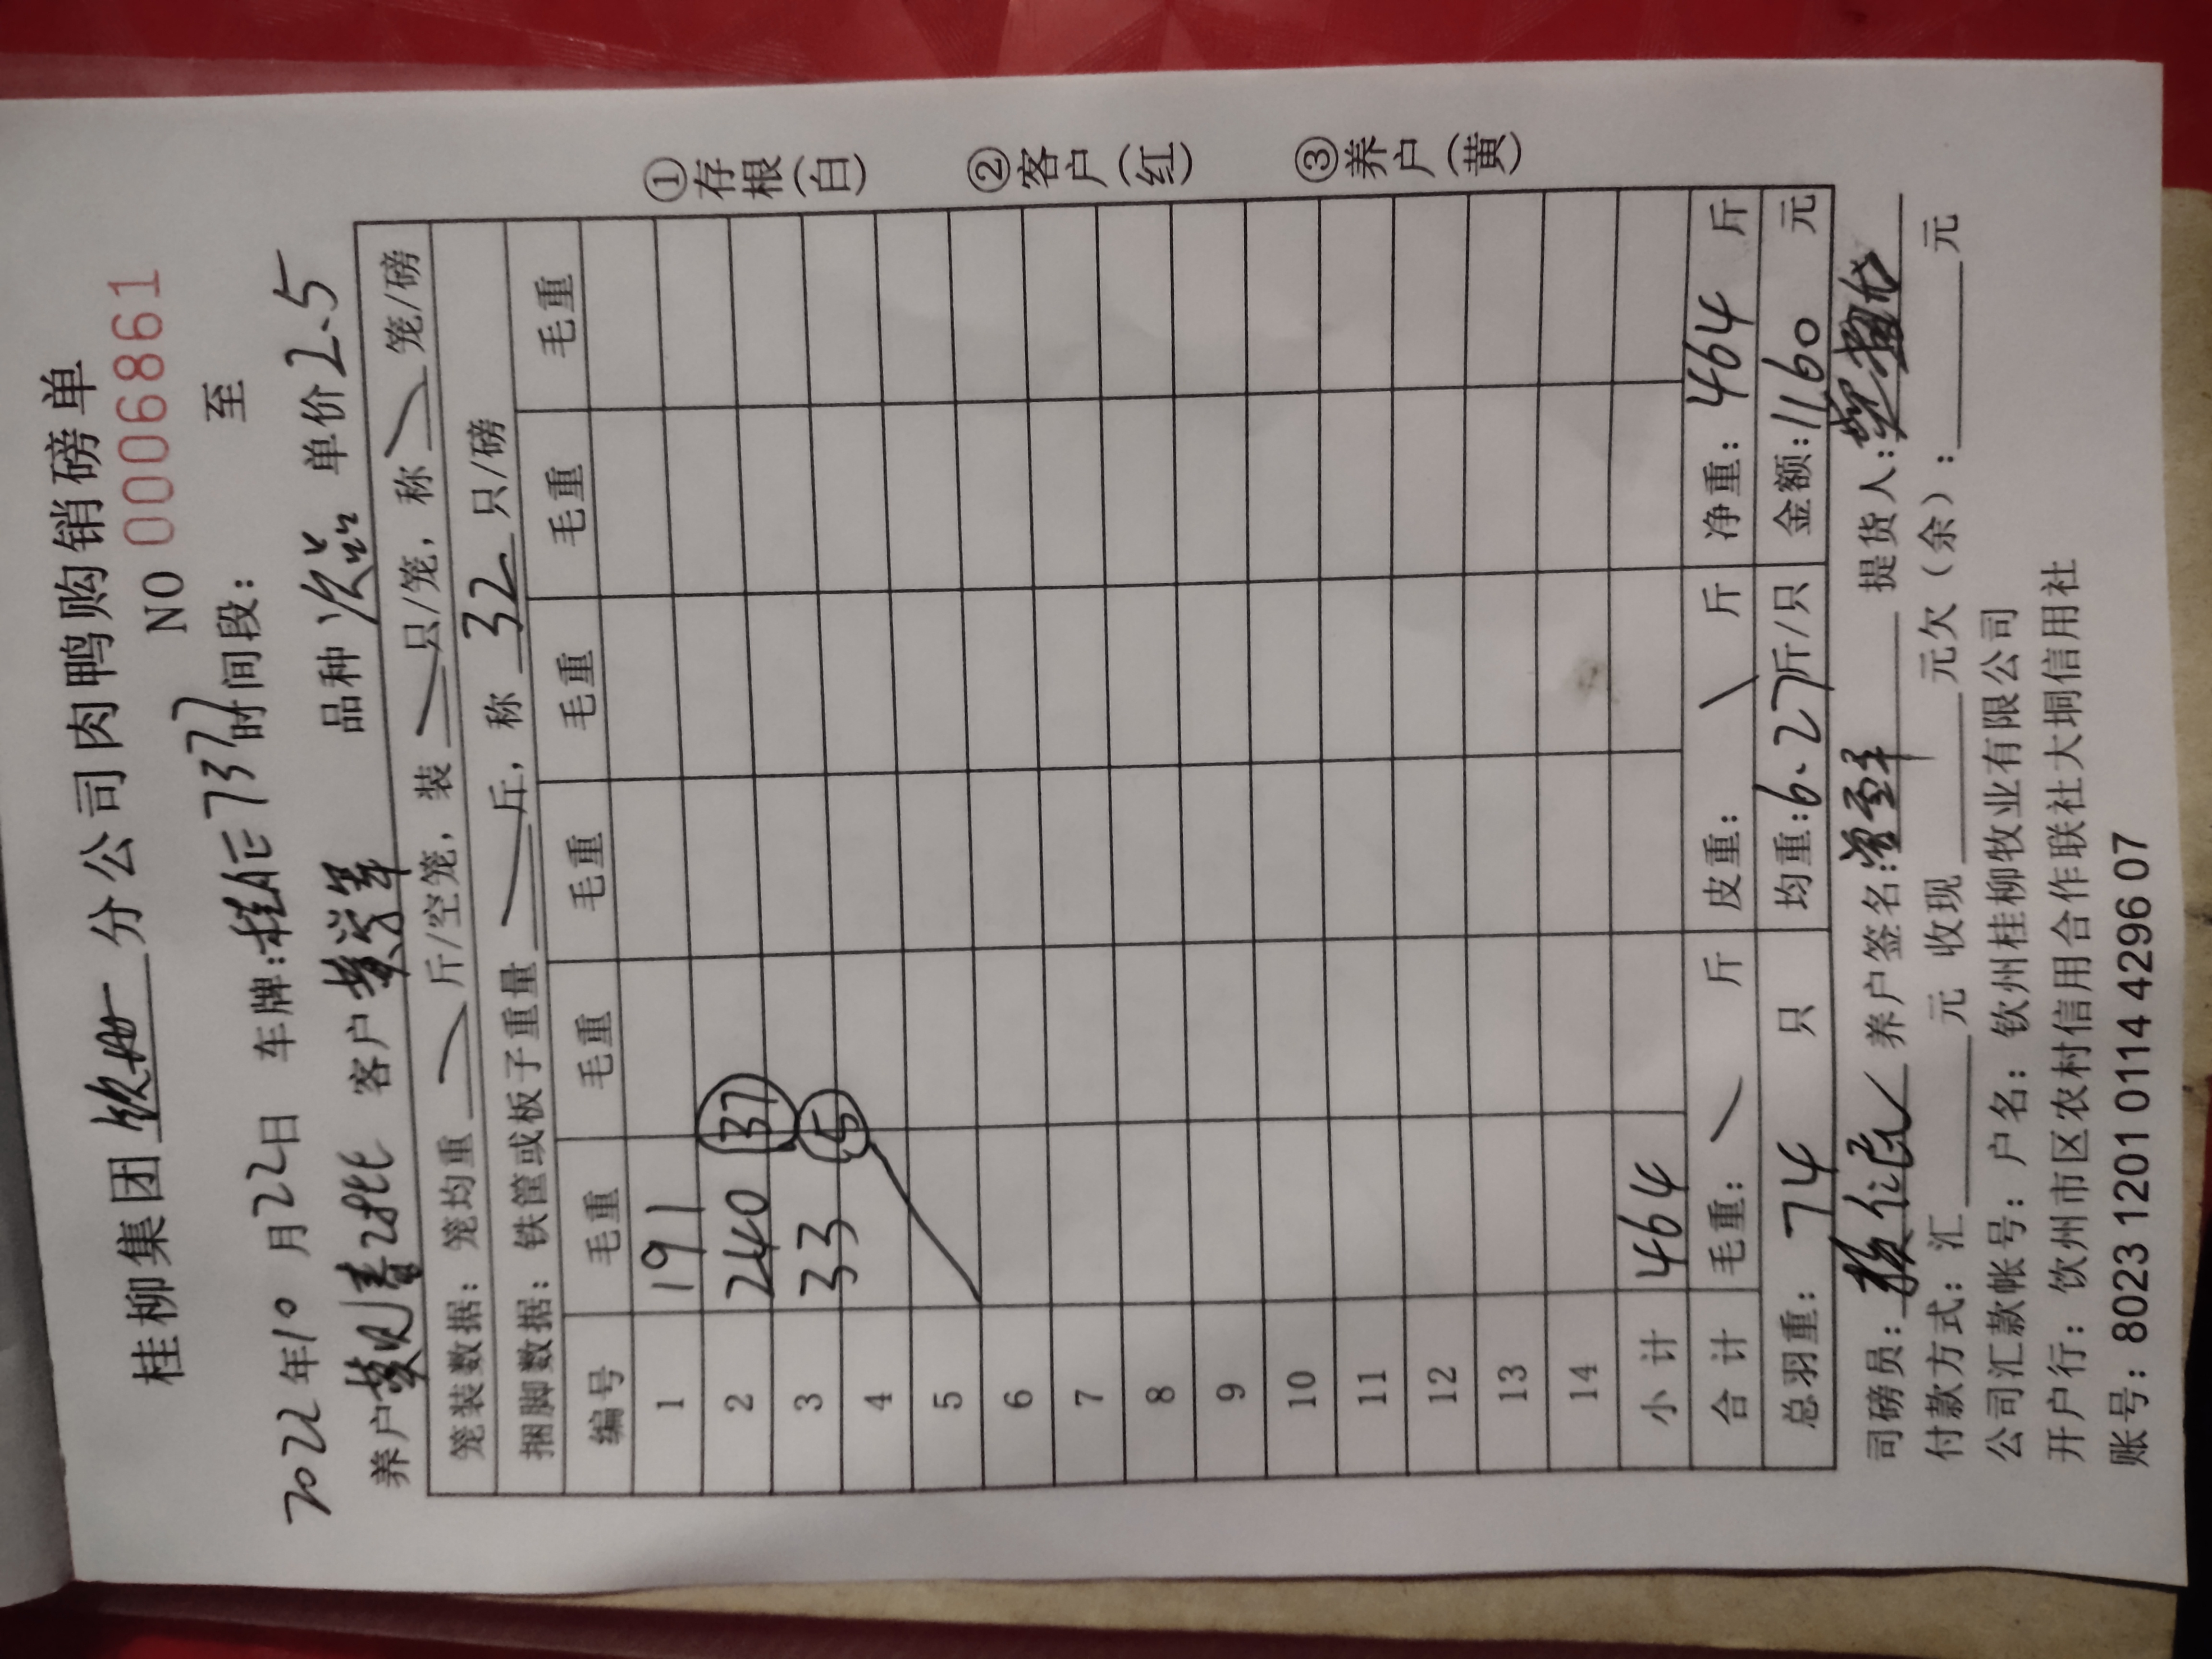 桂柳集团 钦州 分公司肉鸭购销磅单
NO 0006861
2022年10月22日 车牌:桂AE737 时间段: 至
养户 客户 黄学军 品种 次品 单价 2.5
笼装数据: 笼均重 斤/空笼, 装 只/笼, 称 笼/磅
捆脚数据: 铁筐或板子重量 斤, 称 32 只/磅
编号 毛重 毛重 毛重 毛重 毛重 毛重
1 191
2 240 37
3 33 5
4
5
6
7
8
9
10
11
12
13
14
小计 464
合计 毛重: 斤 皮重: 斤 净重: 464 斤
总羽重: 74 只 均重: 6.27斤/只 金额: 1160 元
①存根(白) ②客户(红) ③养户(黄)
司磅员: 养户签名: 提货人:
付款方式: 汇 元 收现 元欠(余): 元
公司汇款帐号: 户名: 钦州桂柳牧业有限公司
开户行: 钦州市区农村信用合作联社大垌信用社
账号: 8023 1201 0114 4296 07